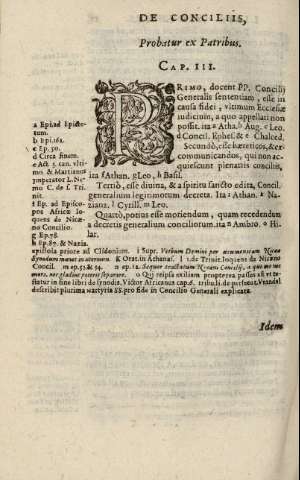 DE CONCILIIS,
Probatur ex Patribus.
CAP. III.
PRIMO, docent PP. Concilij
Generalis sententiam, esse in
causa fidei, vltimum Ecclesiæ
iudicium, a quo appellari non
possit. ita a Atha. b Aug. c Leo.
d Concil. Ephes. & e Chalced.
Secundò, esse hæreticos, & ex
communicandos, qui non ac-
quiescunt plenariis conciliis,
ita f Athan. g Leo, h Basil.
Tertiò, esse diuina, & a spiritu sancto edita, Concil.
generalium legitimorum decreta. Ita i Athan. k Na-
zianz. l Cyrill. m Leo.
Quartò, potius esse moriendum, quam recedendum
a decretis generalium conciliorum. ita n Ambro. o Hi-
lar.
a Epi. ad Epicte-
tum.
b epi. 162.
c Ep. 50.
d Circa finem.
e Act. 3. can. vlti-
mo & Martianus
Imperator L. Ne-
mo C. de S. Tri-
nit.
f Ep. ad Episco-
pos Africæ lo-
quens de Nicæ-
no Concilio.
g Ep. 78.
h Ep. 78. & Nazia.
epistola priore ad Clidonium. i Supr. Verbum Domini per œcumenicam Nicææ
Synodum manet in æternum. k Orat. in Athanas. l 1. de Trinit. loquens de Niceno
Concil. m ep. 53. & 54. n ep. 32. Sequor tractatum Nicæni Concilij, a quo me nec
mors, nec gladius poterit separare. o Qui reipsa exilium propterea passus est vt te-
statur in fine libri de synodis. Victor Africanus cap. 6. trib. li. de persecut. Vvandal
describit plurima martyria SS. pro fide in Concilio Generali explicata.
Idem